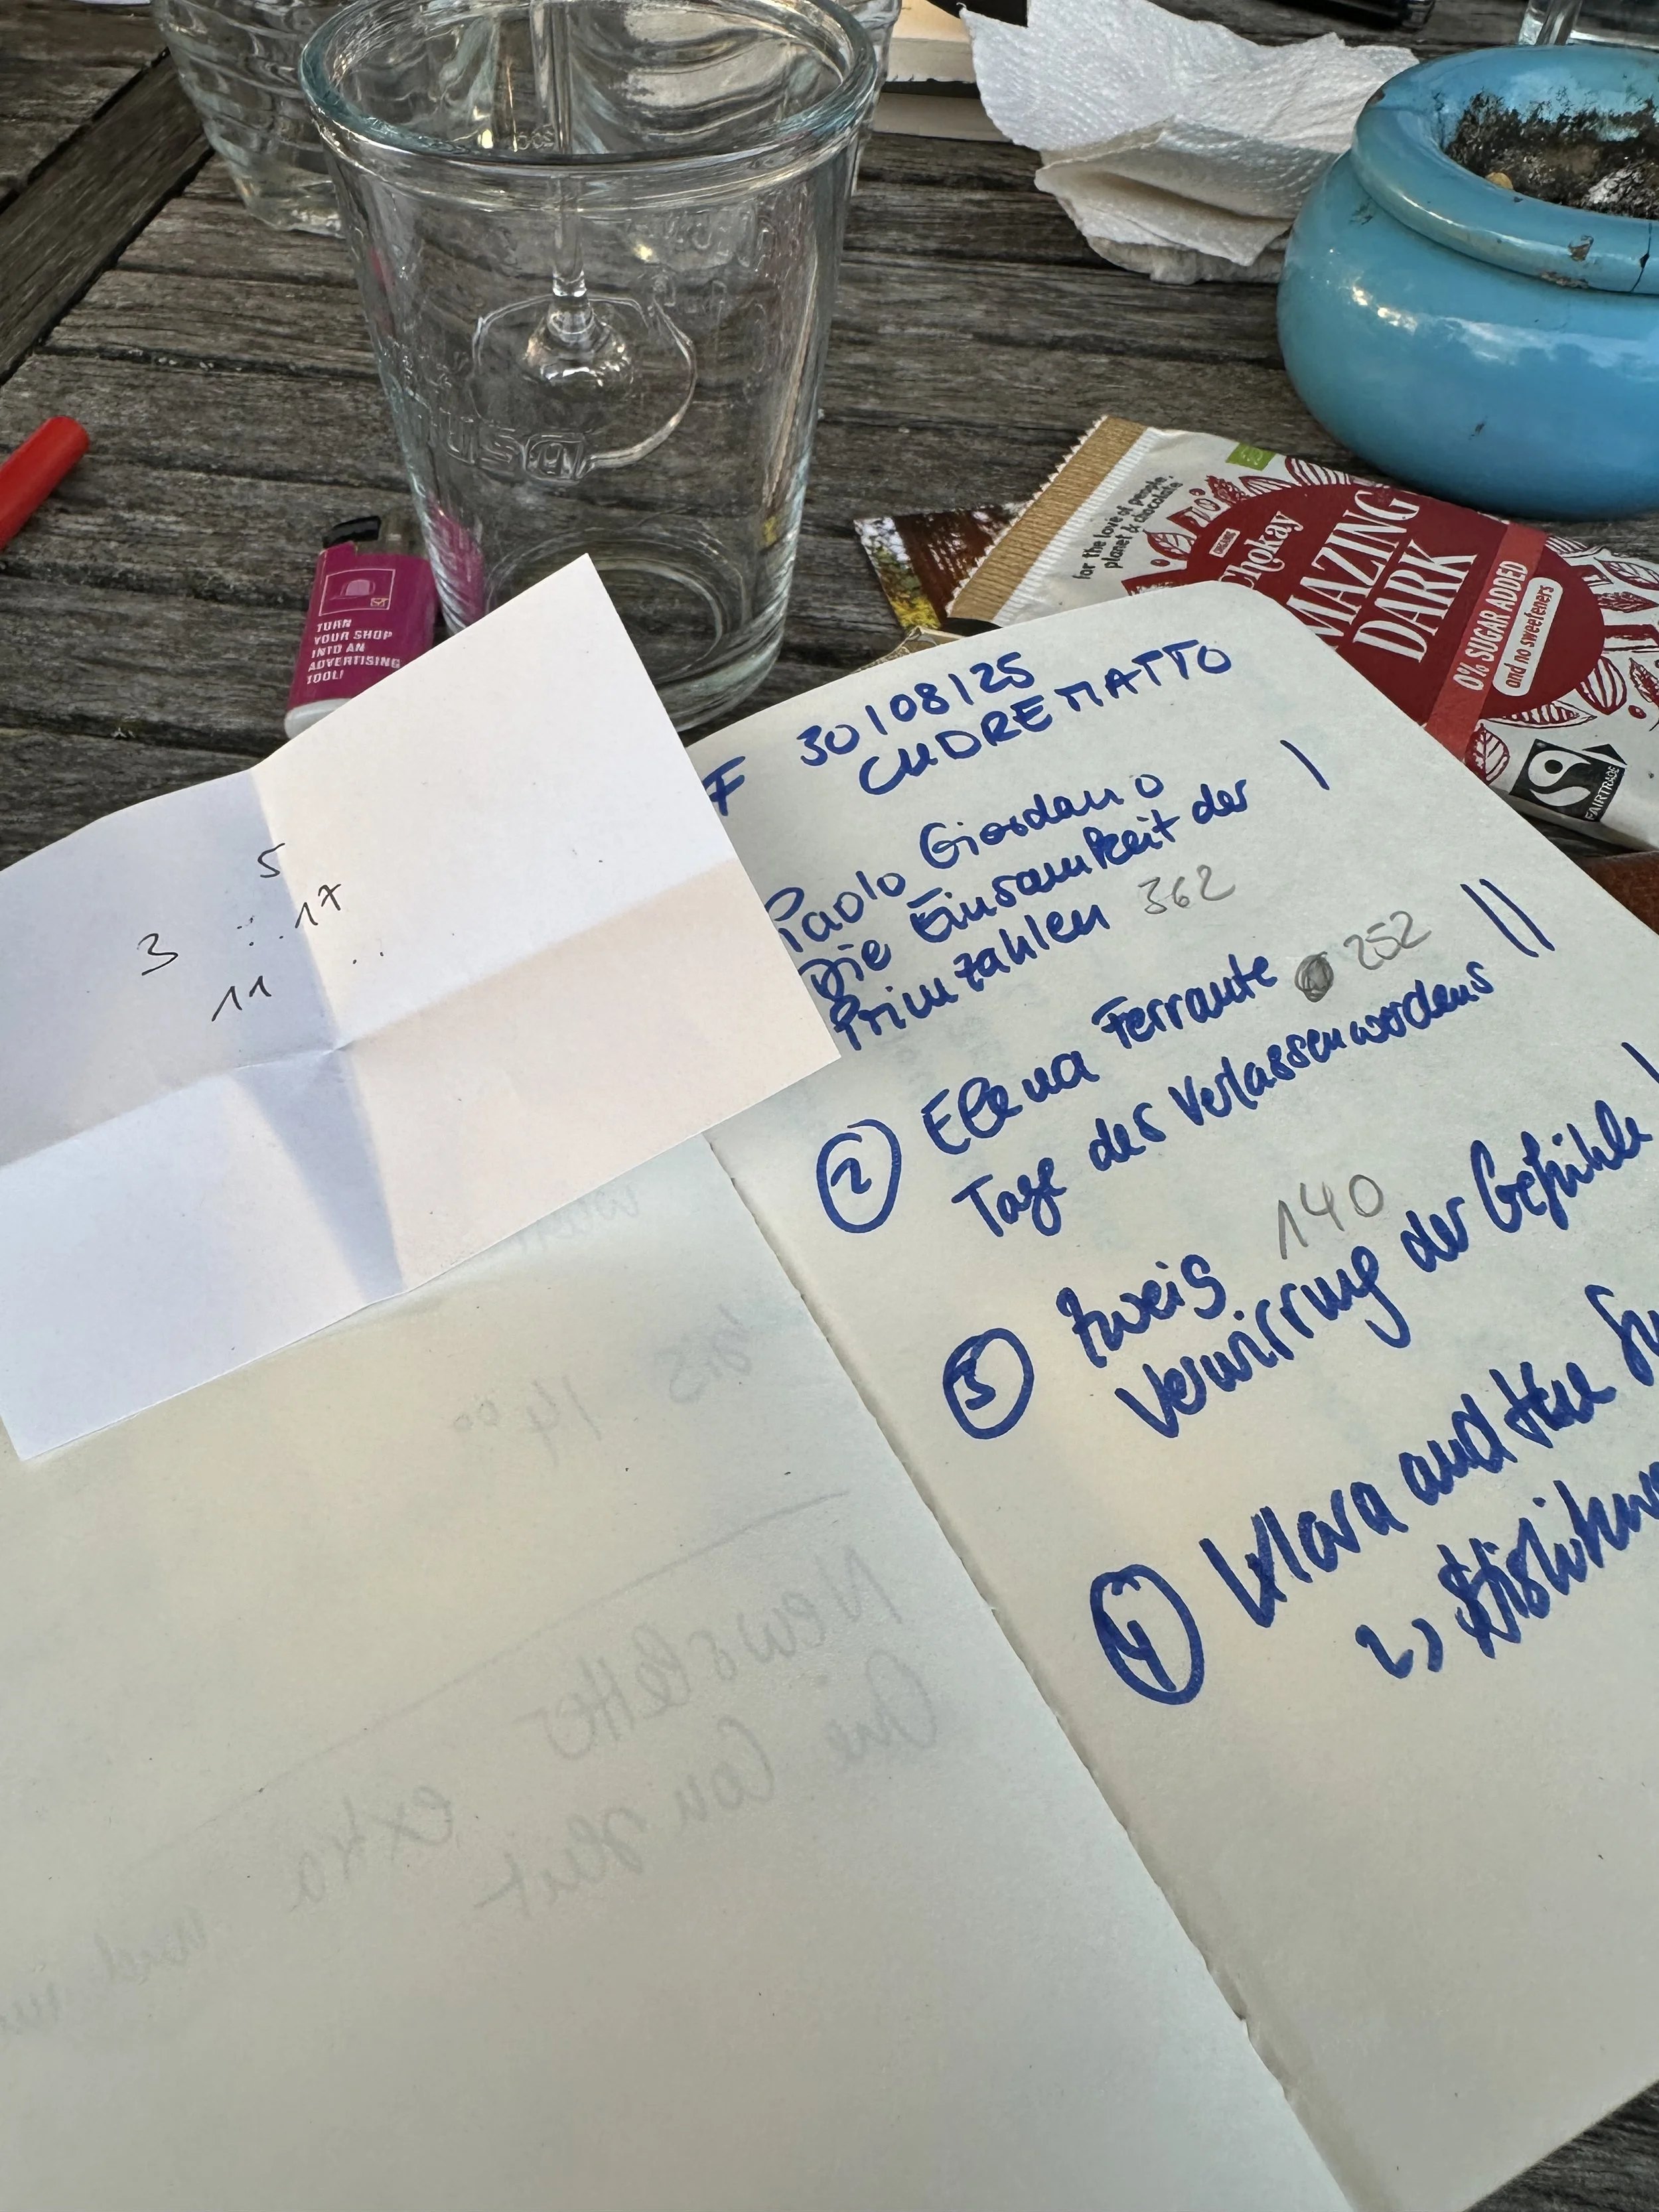 TURN
YOUR SHOP
INTO AN
ADVERTISING
TOOL!
for the love of people,
planet & chocolate
ORGANIC
chokay
AMAZING
DARK
0% SUGAR ADDED
and no sweeteners
FAIRTRADE
5
17
3
11
F 30/08/25
CUDREMATTO
Paolo Giordano
Die Einsamkeit der
Primzahlen 362
2 Elena Ferrante 252
Tage des Verlassenwerdens
3 Zweig 140
Verwirrung der Gefühle
4 Klara and the
bis 14 00
Newsletter
extra